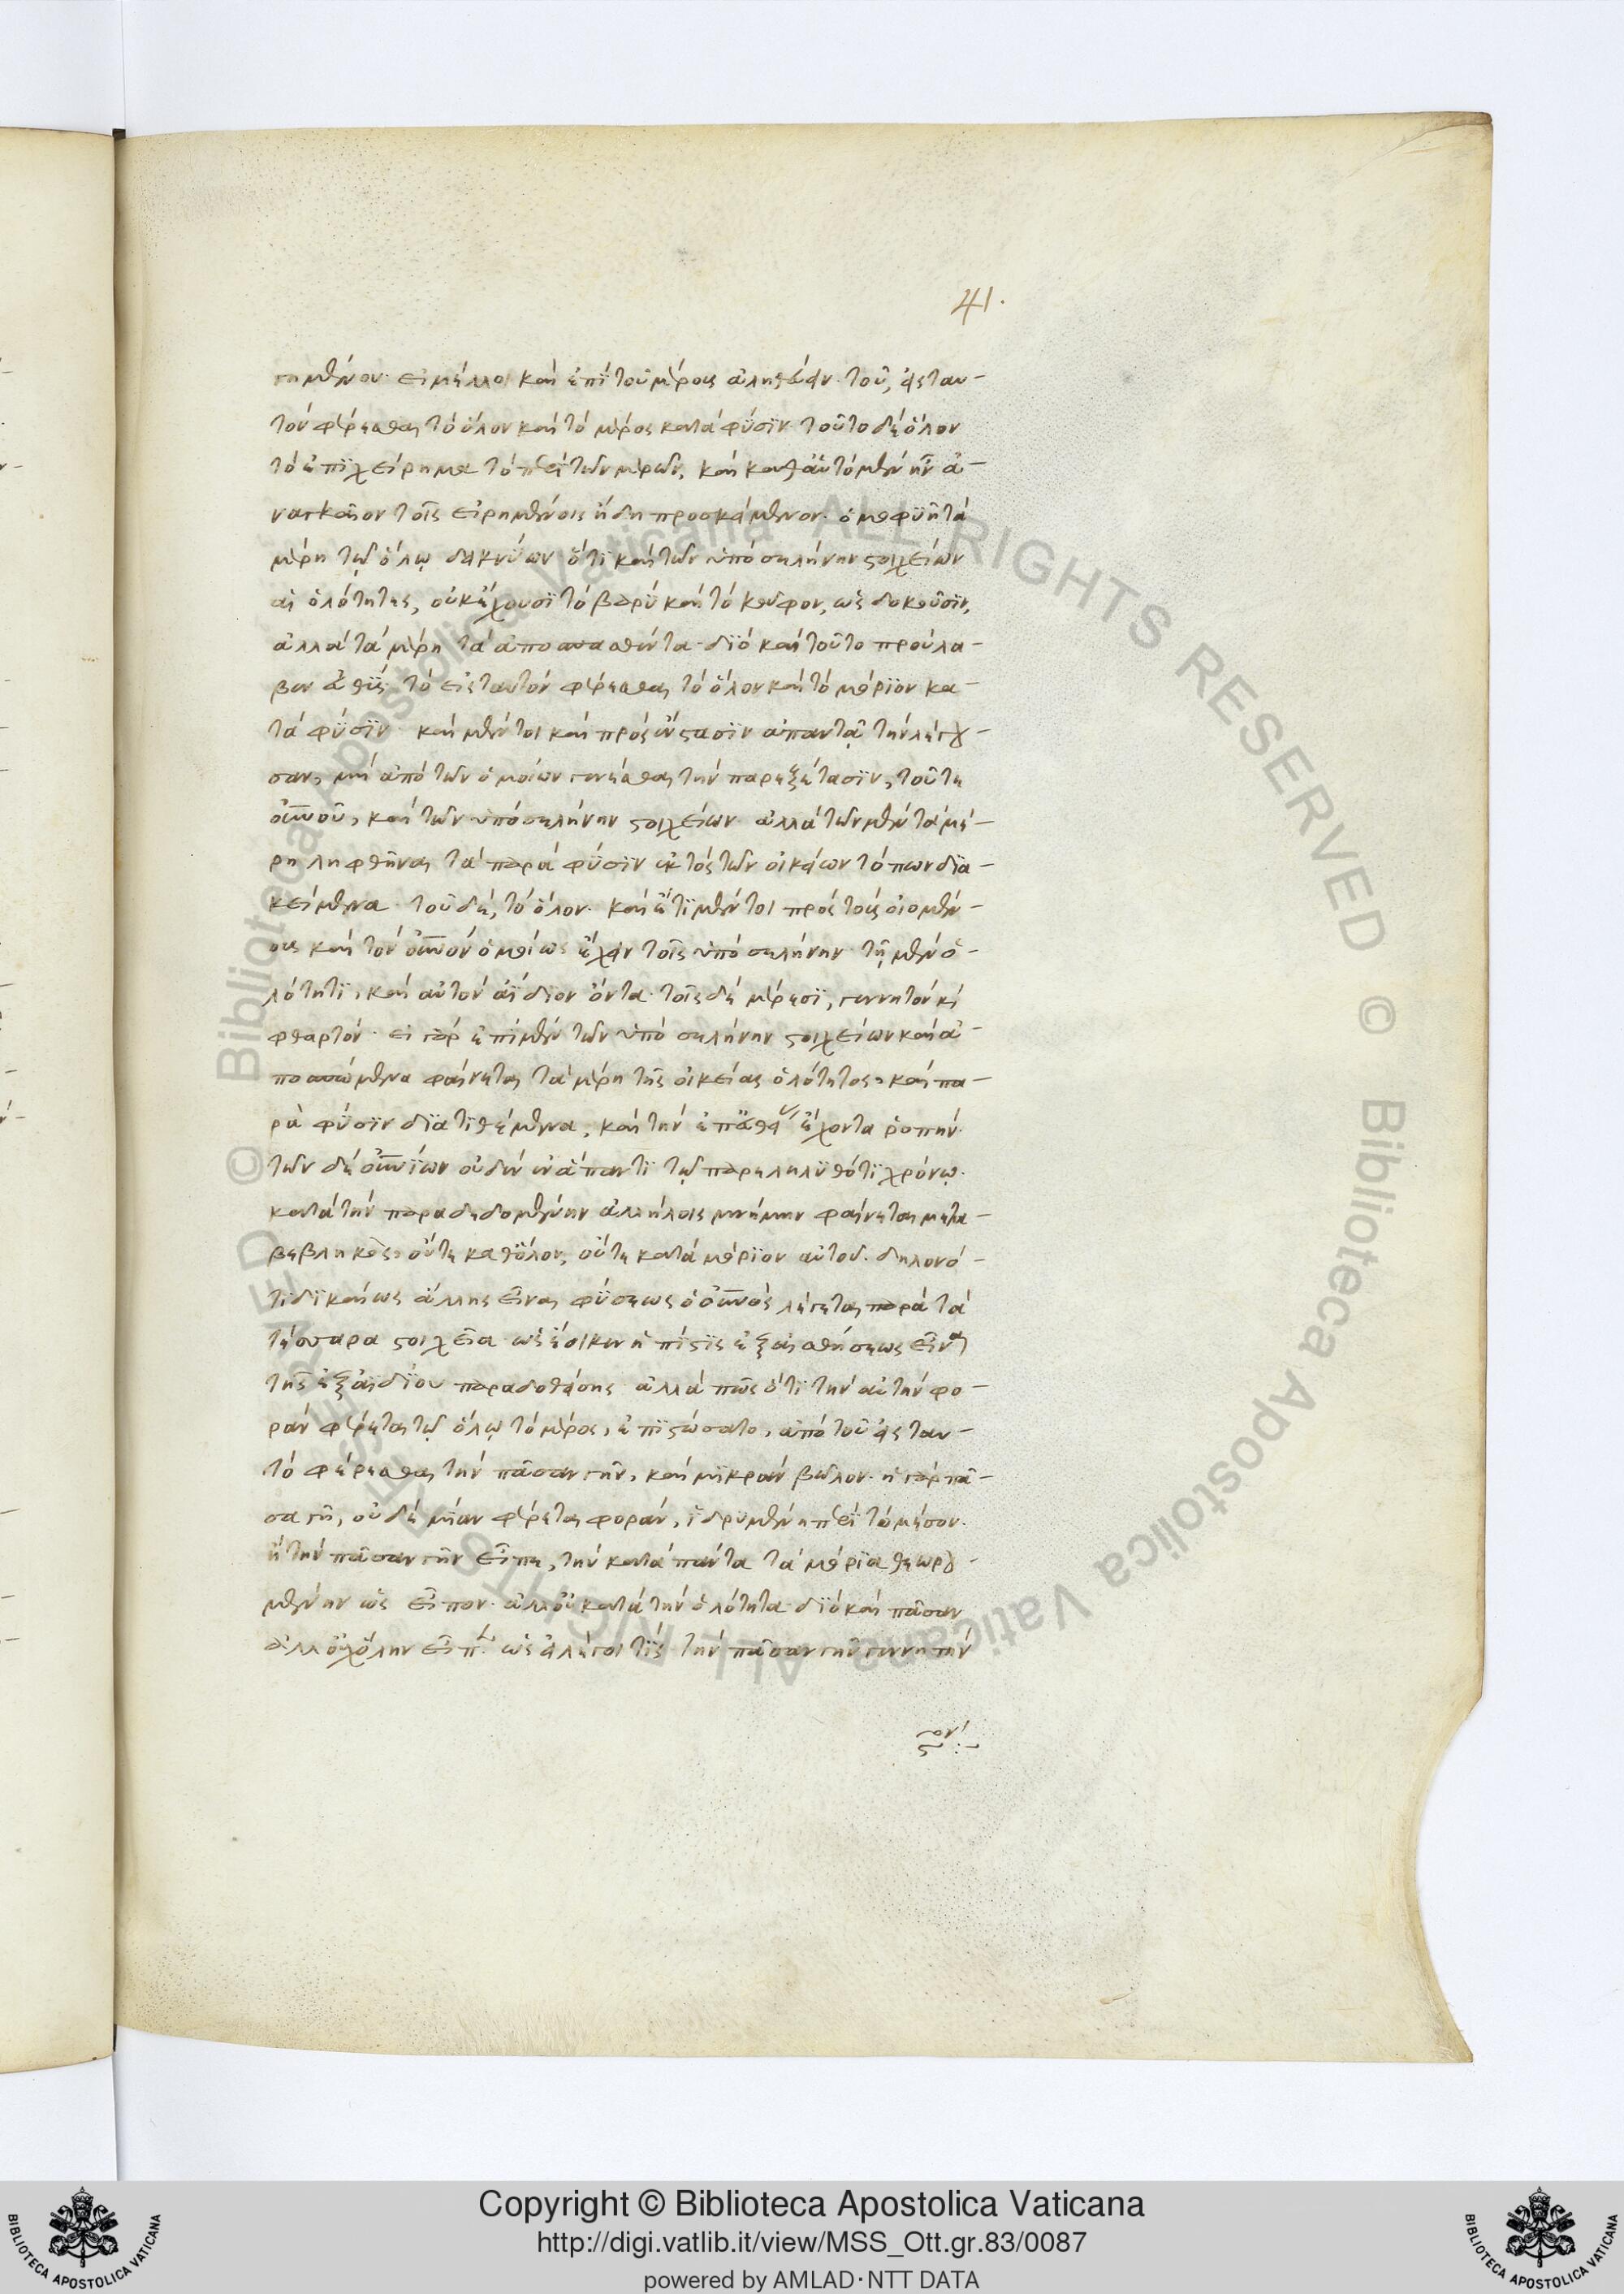 41.
γημένον· εἰ μέλλοι καὶ ἐπὶ τοῦ μέρους ἀληθεύειν τοῦ, εἰς ταυ-
τὸν φέρεσθαι τὸ ὅλον καὶ τὸ μέρος κατὰ φύσϊν· τοῦτο δὲ ὅλον
τὸ ἐπϊχείρημα τὸ περὶ τῶν μερῶν, καὶ καθ' αὑτὸ μὲν ἦν ἀ-
ναγκαῖον τοῖς εἰρημένοις ἤδη προσκείμενον· ὁμοφυῆ τὰ
μέρη τῷ ὅλῳ δεικνύων ὅτϊ καὶ τῶν ὑπὸ σελήνην στοιχείων
αἱ ὁλότητες, οὐκ ἔχουσϊ τὸ βαρὺ καὶ τὸ κοῦφον, ὡς δοκοῦσϊν,
ἀλλὰ τὰ μέρη τὰ ἀποσπασθέντα· δϊὸ καὶ τοῦτο προύλα-
βεν εὐθὺς τὸ εἰς ταυτὸν φέρεσθαι τὸ ὅλον καὶ τὸ μόρϊον κα-
τὰ φύσϊν· καὶ μέντοι καὶ πρὸς ἔνστασϊν ἀπαντᾷ τὴν λέγου-
σαν, μὴ ἀπὸ τῶν ὁμοίων γενέσθαι τὴν παρεξέτασϊν, τοῦ τε
οὐνοῦ, καὶ τῶν ὑπὸ σελήνην στοιχείων· ἀλλὰ τῶν μὲν τὰ μέ-
ρη ληφθῆναι τὰ παρὰ φύσϊν ἐκτὸς τῶν οἰκείων τόπων δϊα-
κείμενα· τοῦ δὲ, τὸ ὅλον· καὶ ἔτϊ μέντοι πρὸς τοὺς οἰομέν-
ους καὶ τὸν οὐνὸν ὁμοίως ἔχειν τοῖς ὑπὸ σελήνην· τῇ μὲν ὁ-
λότητϊ, καὶ αὐτὸν ἀΐδιον ὄντα· τοῖς δὲ μέρεσϊ, γεννητὸν κὶ
φθαρτόν· εἰ γὰρ ἐπὶ μὲν τῶν ὑπὸ σελήνην στοιχείων καὶ ἀ-
ποσπώμενα φαίνεται τὰ μέρη τῆς οἰκείας ὁλότητος, καὶ πα-
ρὰ φύσϊν δϊατϊθέμενα, καὶ τὴν ἐπ' εὐθείας ἔχοντα ῥοπήν·
τῶν δὲ οὐνΐων οὐδὲν ἐν ἅπαντϊ τῷ παρεληλϋθότϊ χρόνῳ·
κατὰ τὴν παραδεδομένην ἀλλήλοις μνήμην φαίνεται μετα-
βεβληκὸς, οὔτε καθ' ὅλον, οὔτε κατὰ μόρϊον αὐτοῦ· δηλονό-
τϊ δϊκαίως ἄλλης εἶναι φύσεως ὁ οὐνὸς λέγεται παρὰ τὰ
τέσσαρα στοιχεῖα· ὡς ἔοικεν ἡ πίστϊς ἐξ αἰσθήσεως εἶναι
τῆς ἐξ ἀϊδΐου παραδοθείσης· ἀλλὰ πῶς ὅτϊ τὴν αὐτὴν φο-
ρὰν φέρεται τῷ ὅλῳ τὸ μέρος, ἐπϊστώσατο, ἀπὸ τοῦ εἰς ταυ-
τὸ φέρεσθαι τὴν πᾶσαν γῆν, καὶ μϊκρὰν βῶλον· ἡ γὰρ πᾶ-
σα γῆ, οὐδὲ μΐαν φέρεται φορὰν, ἱδρυμένη περὶ τὸ μέσον·
ἢ τὴν πᾶσαν γῆν εἶπε, τὴν κατὰ πάντα τὰ μόρϊα θεωρου-
μένην ὡς εἶπον· ἀλλ' οὐ κατὰ τὴν ὁλότητα· δϊὸ καὶ πᾶσαν
ἀλλ' οὐχ ὅλην εἶπεν· ὡς εἰ λέγοι τϊς τὴν πᾶσαν γῆν γεννητὴν
Copyright © Biblioteca Apostolica Vaticana
http://digi.vatlib.it/view/MSS_Ott.gr.83/0087
powered by AMLAD·NTT DATA
BIBLIOTECA APOSTOLICA VATICANA
BIBLIOTECA APOSTOLICA VATICANA